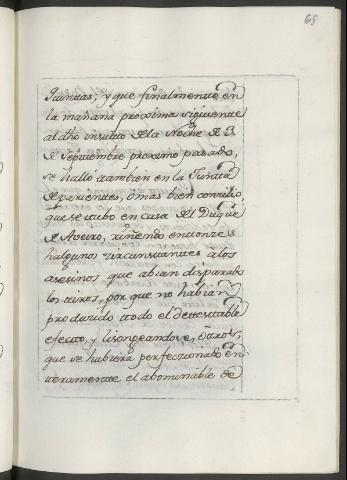 65
Juntas, y que finalmente en
la mañana proxima siguiente
al dho insulto de la Noche de 3
de septiembre proximo pasado,
se halló tambien en la Junta
de parientes, ô mas bien consilio,
que se tubo en casa del Duque
de Aveiro, riñendo entonzes
halgunos circunstantes a los
asesinos que abian disparado
los tiros, por que no habian
producido todo el detestable
efecto, y lisongeandose, otros,
que se hubiera perfeccionado en-
teramente el abominable de